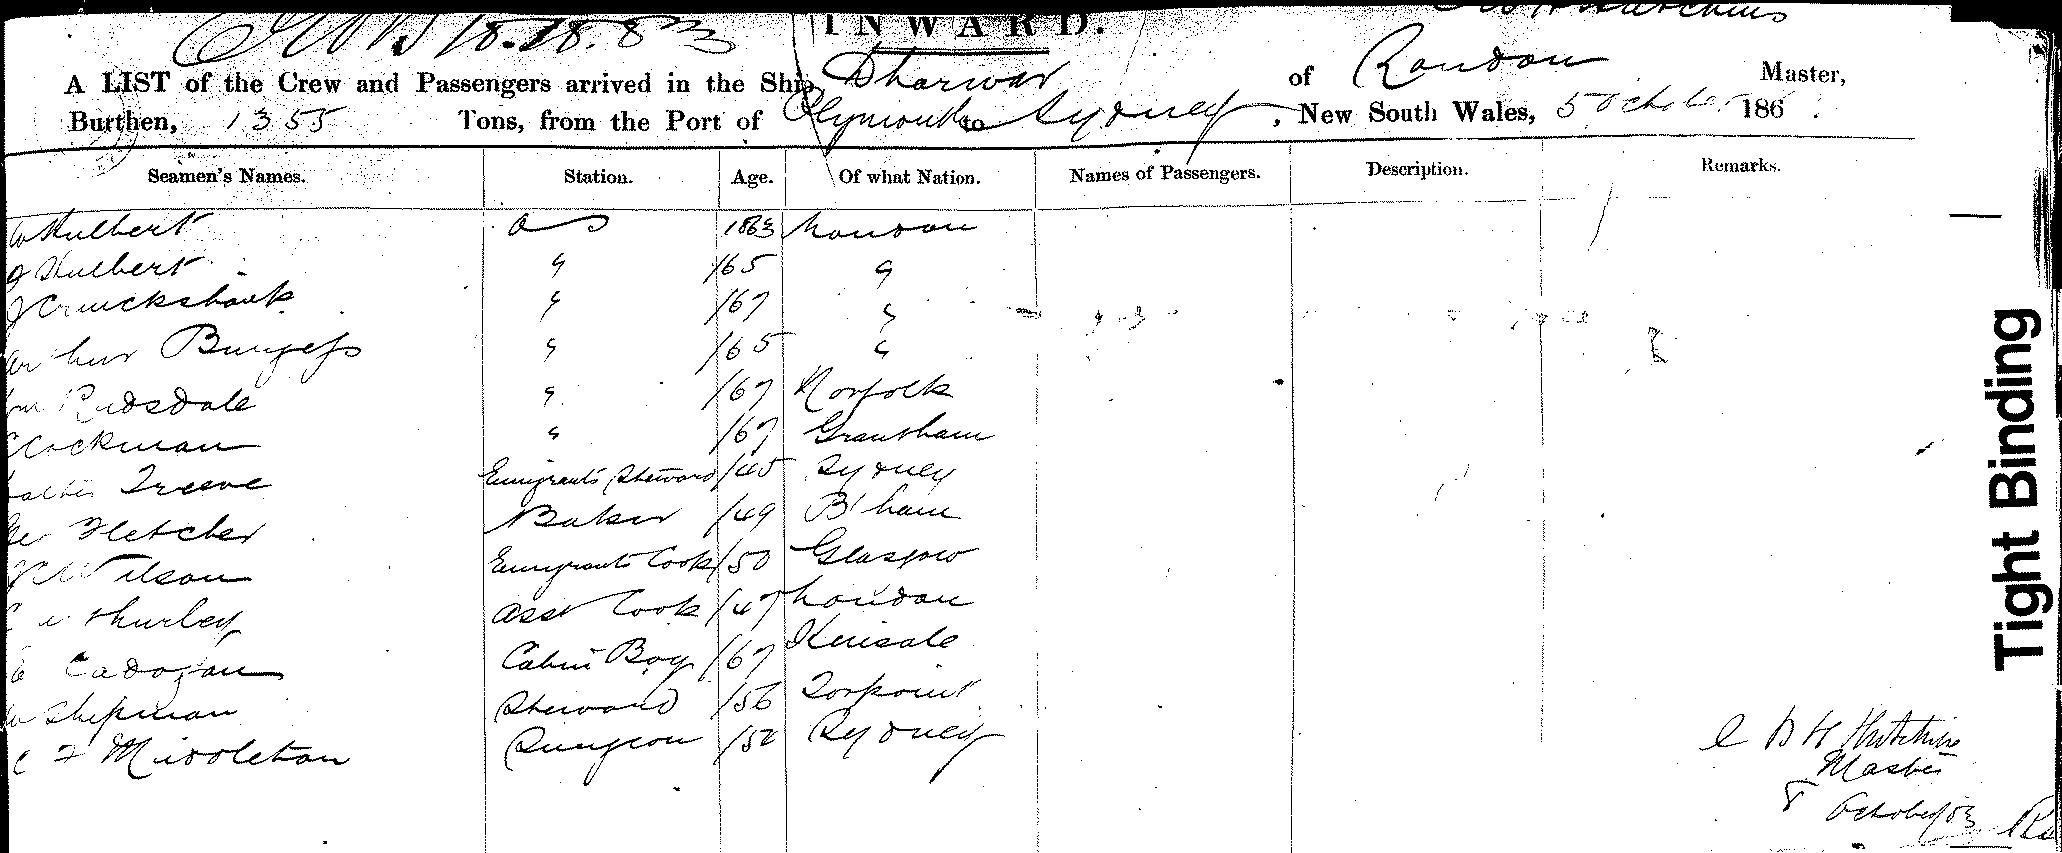 INWARD.
A LIST of the Crew and Passengers arrived in the Ship Dharwar of London Master,
Burthen, 1355 Tons, from the Port of Plymouth to Sydney, New South Wales, 5 October 186 .
Seamen's Names. Station. Age. Of what Nation. Names of Passengers. Description. Remarks.
W Hulbert OS 1863 London
Hulbert " /65 "
J Cruickshank " /67 "
Arthur Burgess " /65 "
Wm Rudsdale " /67 Norfolk
Cockman " /67 Grantham
Walter Treeve Emigrants Steward /45 Sydney
Geo Fletcher Baker /49 B'ham
Wilson Emigrants Cook /50 Glasgow
Hurley Asst Cook /47 London
Cadogan Cabin Boy /67 Kinsale
W Shepman Steward /56 Torpoint
C F Middleton Surgeon /50 Sydney
Hutchins
Master
8 October/83
Tight Binding